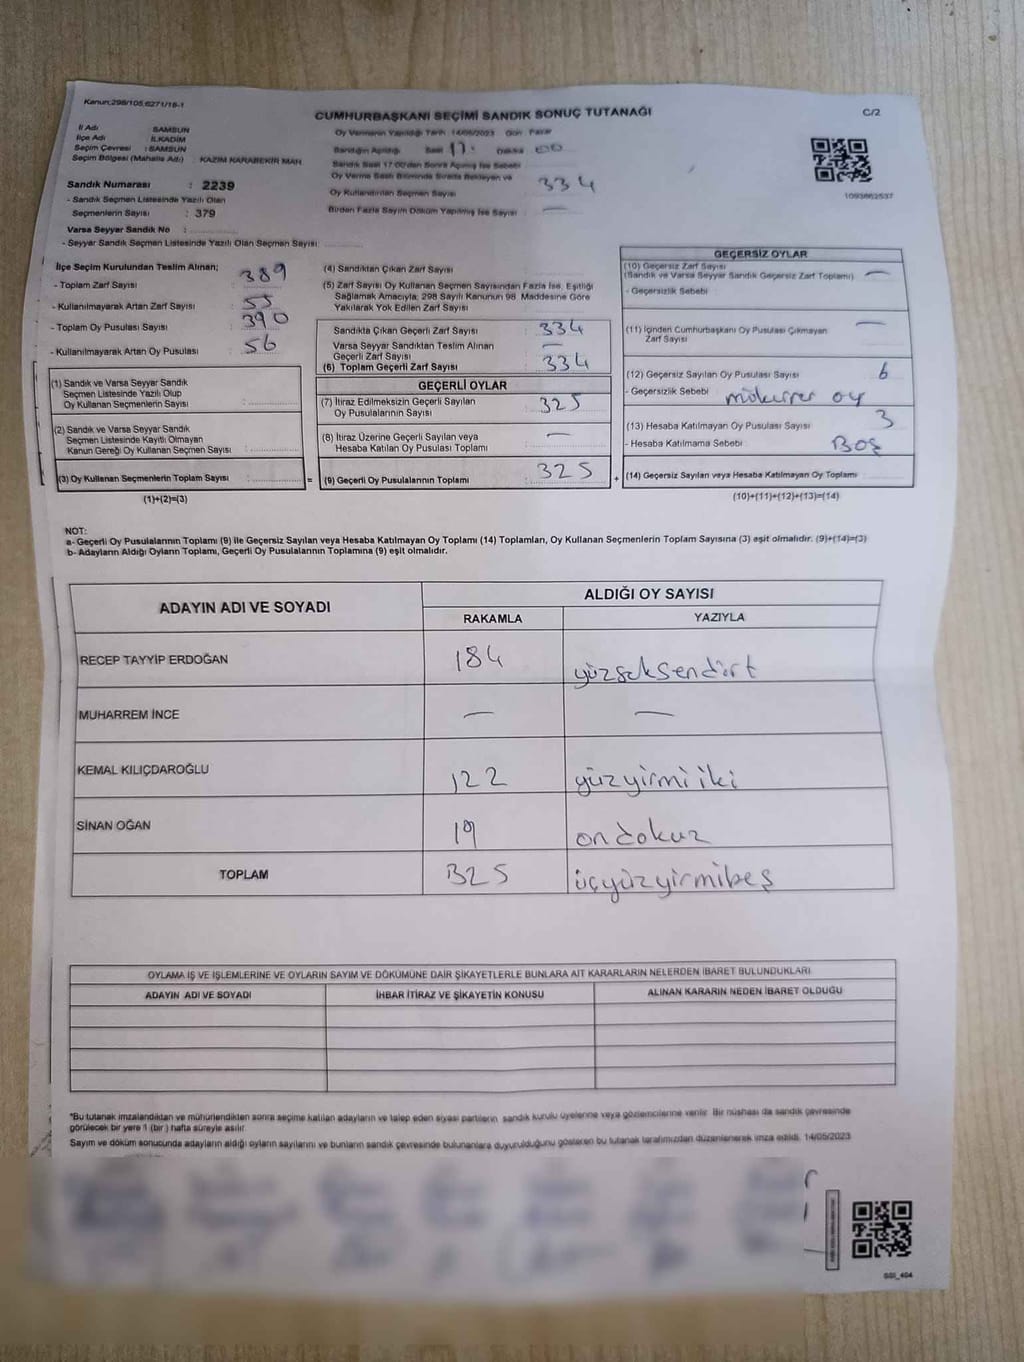 Kanun:298/105,6271/18-1
CUMHURBAŞKANI SEÇİMİ SANDIK SONUÇ TUTANAĞI
C/2
İl Adı SAMSUN
İlçe Adı İLKADIM
Seçim Çevresi : SAMSUN
Seçim Bölgesi (Mahalle Adı) KAZIM KARABEKİR MAH.
Sandık Numarası : 2239
- Sandık Seçmen Listesinde Yazılı Olan
Seçmenlerin Sayısı : 379
Varsa Seyyar Sandık No :
- Seyyar Sandık Seçmen Listesinde Yazılı Olan Seçmen Sayısı:
Oy Vermenin Yapıldığı Tarih 14/05/2023 Gün Pazar
Sandığın Açıldığı Saat 17: Dakika 00
Sandık Saat 17:00'den Sonra Açılmış İse Sebebi
Oy Verme Saati Bitiminde Sırada Bekleyen ve
Oy Kullandırılan Seçmen Sayısı 334
Birden Fazla Sayım Döküm Yapılmış İse Sayısı : —
1093662537
İlçe Seçim Kurulundan Teslim Alınan;
- Toplam Zarf Sayısı : 389
- Kullanılmayarak Artan Zarf Sayısı : 55
- Toplam Oy Pusulası Sayısı : 390
- Kullanılmayarak Artan Oy Pusulası : 56
(1) Sandık ve Varsa Seyyar Sandık
Seçmen Listesinde Yazılı Olup
Oy Kullanan Seçmenlerin Sayısı :
(2) Sandık ve Varsa Seyyar Sandık
Seçmen Listesinde Kayıtlı Olmayan
Kanun Gereği Oy Kullanan Seçmen Sayısı :
(3) Oy Kullanan Seçmenlerin Toplam Sayısı : =
(1)+(2)=(3)
(4) Sandıktan Çıkan Zarf Sayısı :
(5) Zarf Sayısı Oy Kullanan Seçmen Sayısından Fazla İse, Eşitliği
Sağlamak Amacıyla; 298 Sayılı Kanunun 98. Maddesine Göre
Yakılarak Yok Edilen Zarf Sayısı :
Sandıkta Çıkan Geçerli Zarf Sayısı : 334
Varsa Seyyar Sandıktan Teslim Alınan
Geçerli Zarf Sayısı : —
(6) Toplam Geçerli Zarf Sayısı : 334
GEÇERLİ OYLAR
(7) İtiraz Edilmeksizin Geçerli Sayılan
Oy Pusulalarının Sayısı : 325
(8) İtiraz Üzerine Geçerli Sayılan veya
Hesaba Katılan Oy Pusulası Toplamı : —
(9) Geçerli Oy Pusulalarının Toplamı : 325 +
GEÇERSİZ OYLAR
(10) Geçersiz Zarf Sayısı
(Sandık ve Varsa Seyyar Sandık Geçersiz Zarf Toplamı) : —
- Geçersizlik Sebebi :
(11) İçinden Cumhurbaşkanı Oy Pusulası Çıkmayan
Zarf Sayısı : —
(12) Geçersiz Sayılan Oy Pusulası Sayısı : 6
- Geçersizlik Sebebi : mükerrer oy
(13) Hesaba Katılmayan Oy Pusulası Sayısı : 3
- Hesaba Katılmama Sebebi : Boş
(14) Geçersiz Sayılan veya Hesaba Katılmayan Oy Toplamı :
(10)+(11)+(12)+(13)=(14)
NOT:
a- Geçerli Oy Pusulalarının Toplamı (9) ile Geçersiz Sayılan veya Hesaba Katılmayan Oy Toplamı (14) Toplamları, Oy Kullanan Seçmenlerin Toplam Sayısına (3) eşit olmalıdır. (9)+(14)=(3)
b- Adayların Aldığı Oyların Toplamı, Geçerli Oy Pusulalarının Toplamına (9) eşit olmalıdır.
ADAYIN ADI VE SOYADI
ALDIĞI OY SAYISI
RAKAMLA YAZIYLA
RECEP TAYYİP ERDOĞAN 184 yüzseksendört
MUHARREM İNCE — —
KEMAL KILIÇDAROĞLU 122 yüzyirmiiki
SİNAN OĞAN 19 ondokuz
TOPLAM 325 üçyüzyirmibeş
OYLAMA İŞ VE İŞLEMLERİNE VE OYLARIN SAYIM VE DÖKÜMÜNE DAİR ŞİKAYETLERLE BUNLARA AİT KARARLARIN NELERDEN İBARET BULUNDUKLARI
ADAYIN ADI VE SOYADI İHBAR İTİRAZ VE ŞİKAYETİN KONUSU ALINAN KARARIN NEDEN İBARET OLDUĞU
*Bu tutanak imzalandıktan ve mühürlendikten sonra seçime katılan adayların ve talep eden siyasi partilerin sandık kurulu üyelerine veya gözlemcilerine verilir. Bir nüshası da sandık çevresinde
görülecek bir yere 1 (bir) hafta süreyle asılır.
Sayım ve döküm sonucunda adayların aldığı oyların sayılarını ve bunların sandık çevresinde bulunanlara duyurulduğunu gösteren bu tutanak tarafımızdan düzenlenerek imza edildi. 14/05/2023